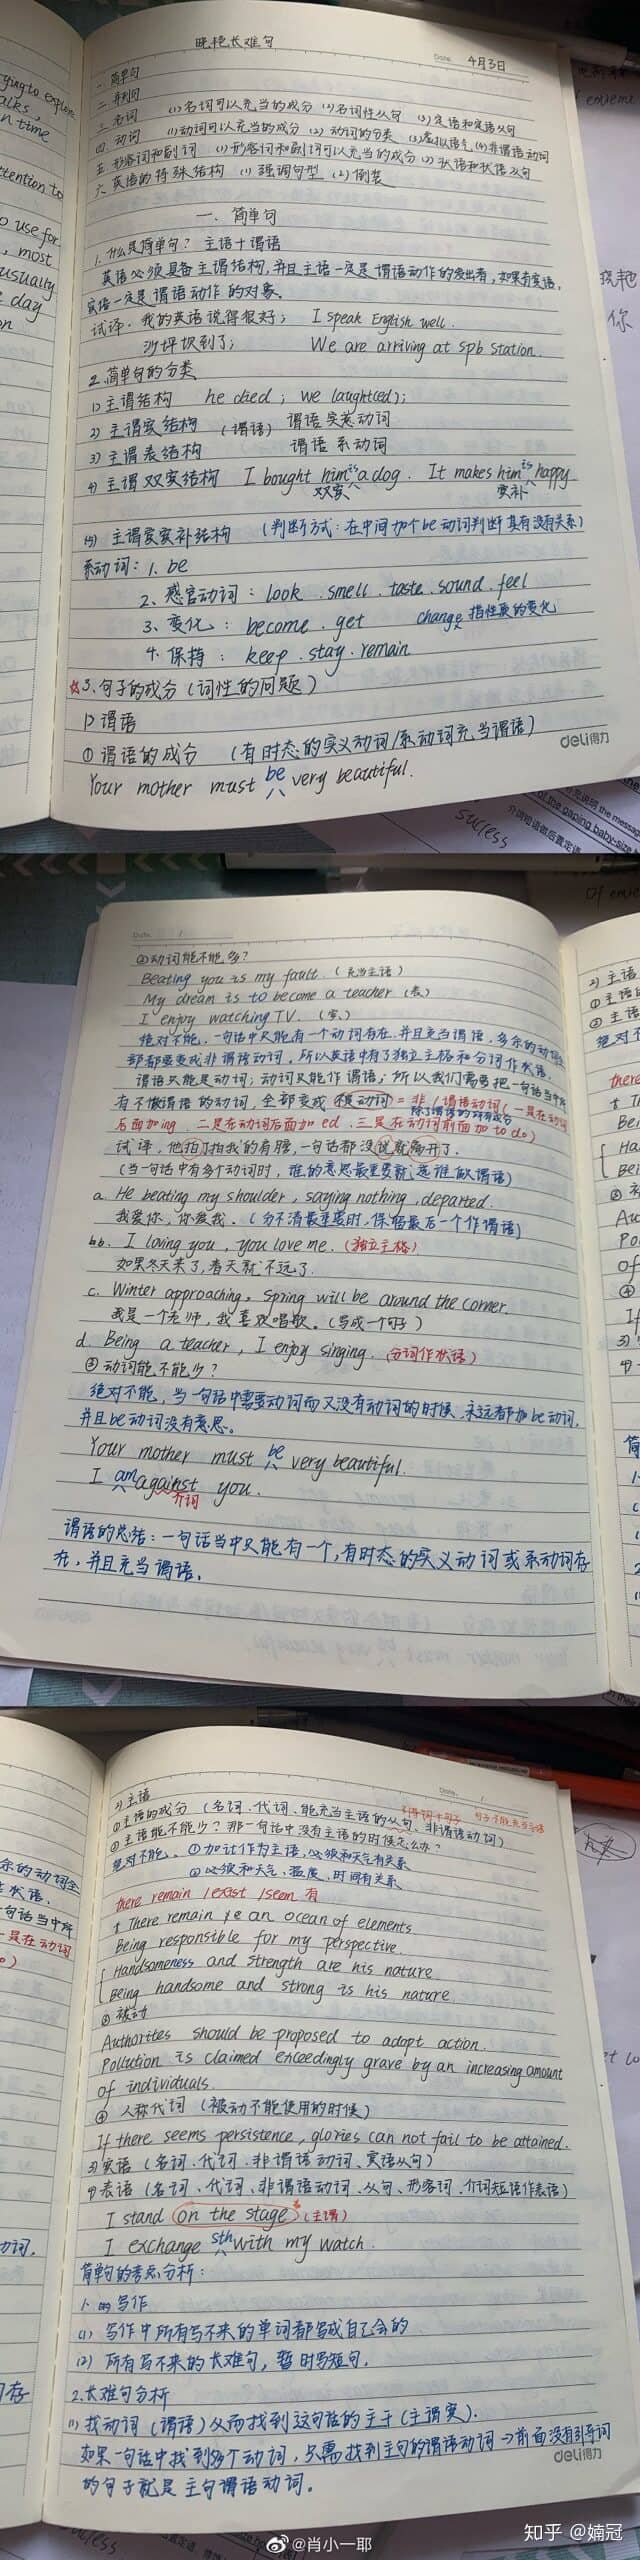 晓艳长难句
Date. 4月3日
一. 简单句
二. 并列句
三. 名词 (1)名词可以充当的成分 (2)名词性从句 (3)定语和定语从句
四. 动词 (1)动词可以充当的成分 (2)动词的分类 (3)虚拟语气 (4)非谓语动词
五. 形容词和副词 (1)形容词和副词可以充当的成分 (2)状语和状语从句
六. 英语的特殊结构 (1)强调句型 (2)倒装
一. 简单句
1. 什么是简单句? 主语+谓语
英语必须具备主谓结构, 并且主语一定是谓语动作的发出者, 如果有宾语,
宾语一定是谓语动作的对象。
试译. 我的英语说得很好; I speak English well.
沙坪坝到了; We are arriving at spb station.
2. 简单句的分类
1) 主谓结构 he died; we laught(ed);
2) 主谓宾结构 (谓语) 谓语实义动词
3) 主谓表结构 谓语系动词
4) 主谓双宾结构 I bought him is a dog. It makes him is happy
双宾 宾补
(5) 主谓宾宾补结构 (判断方式: 在中间加个be动词判断其有没有关系)
系动词: 1. be
2. 感官动词: look. smell. taste. sound. feel
3. 变化: become. get change 指性质的变化
4. 保持: keep. stay. remain
☆3. 句子的成分 (词性的问题)
1) 谓语
① 谓语的成分 (有时态的实义动词/系动词充当谓语)
Your mother must be very beautiful.
deli得力
success
Date. /
②动词能不能多?
Beating you is my fault. (充当主语)
My dream is to become a teacher (表)
I enjoy watching TV. (宾)
绝对不能, 一句话中只能有一个动词存在, 并且充当谓语, 多余的动词全
部都要变成非谓语动词, 所以英语中有了独立主格和分词作状语.
谓语只能是动词; 动词只能作谓语; 所以我们需要把一句话当中所
有不做谓语的动词, 全部变成不是动词 = 非/谓语动词 (一是在动词
除了谓语的所有成分
后面加ing. 二是在动词后面加ed, 三是在动词前面加to do)
试译, 他拍了拍我的肩膀, 一句话都没说就离开了.
(当一句话中有多个动词时, 谁的意思最重要就选谁做谓语)
a. He beating my shoulder, saying nothing, departed.
我爱你, 你爱我. (分不清最重要时, 保留最后一个作谓语)
b. I loving you, you love me. (独立主格)
如果冬天来了, 春天就不远了.
c. Winter approaching, Spring will be around the corner.
我是一个老师, 我喜欢唱歌. (写成一个句子)
d. Being a teacher, I enjoy singing. (分词作状语)
③ 动词能不能少?
绝对不能, 当一句话中需要动词而又没有动词的时候, 永远都加be动词,
并且be动词没有意思。
Your mother must be very beautiful.
I am against you.
介词
谓语的总结: 一句话当中只能有一个, 有时态的实义动词或系动词存
在, 并且充当谓语.
Date. /
2) 主语
引导词+句子 句子不能充当主语
①主语的成分 (名词. 代词. 能充当主语的从句, 非谓语动词)
②主语能不能少? 那一句话中没有主语的时候怎么办?
绝对不能。 ①加it作为主语, 必须和天气有关系
②必须和天气、温度、时间有关系
there remain / exist / seem 有
There remain an ocean of elements
Being responsible for my perspective.
Handsomeness and strength are his nature
Being handsome and strong is his nature.
③ 被动
Authorites should be proposed to adopt action.
Pollution is claimed exceedingly grave by an increasing amount
of individuals.
④ 人称代词 (被动不能使用的时候)
If there seems persistence, glories can not fail to be attained.
3) 宾语 (名词. 代词. 非谓语动词、宾语从句)
4) 表语 (名词、代词、非谓语动词、从句、形容词、介词短语作表语)
I stand on the stage (主谓)
I exchange sth with my watch.
简单句的考点分析:
1. 的写作
(1) 写作中所有写不来的单词都写成自己会的
(2) 所有写不来的长难句, 暂时写短句.
2. 长难句分析
(1) 找动词 (谓语) 从而找到这句话的主干 (主谓宾).
如果一句话中找到多个动词, 只需找到主句的谓语动词→前面没有引导词
的句子就是主句谓语动词。
deli得力
@肖小一耶
知乎 @婻冠